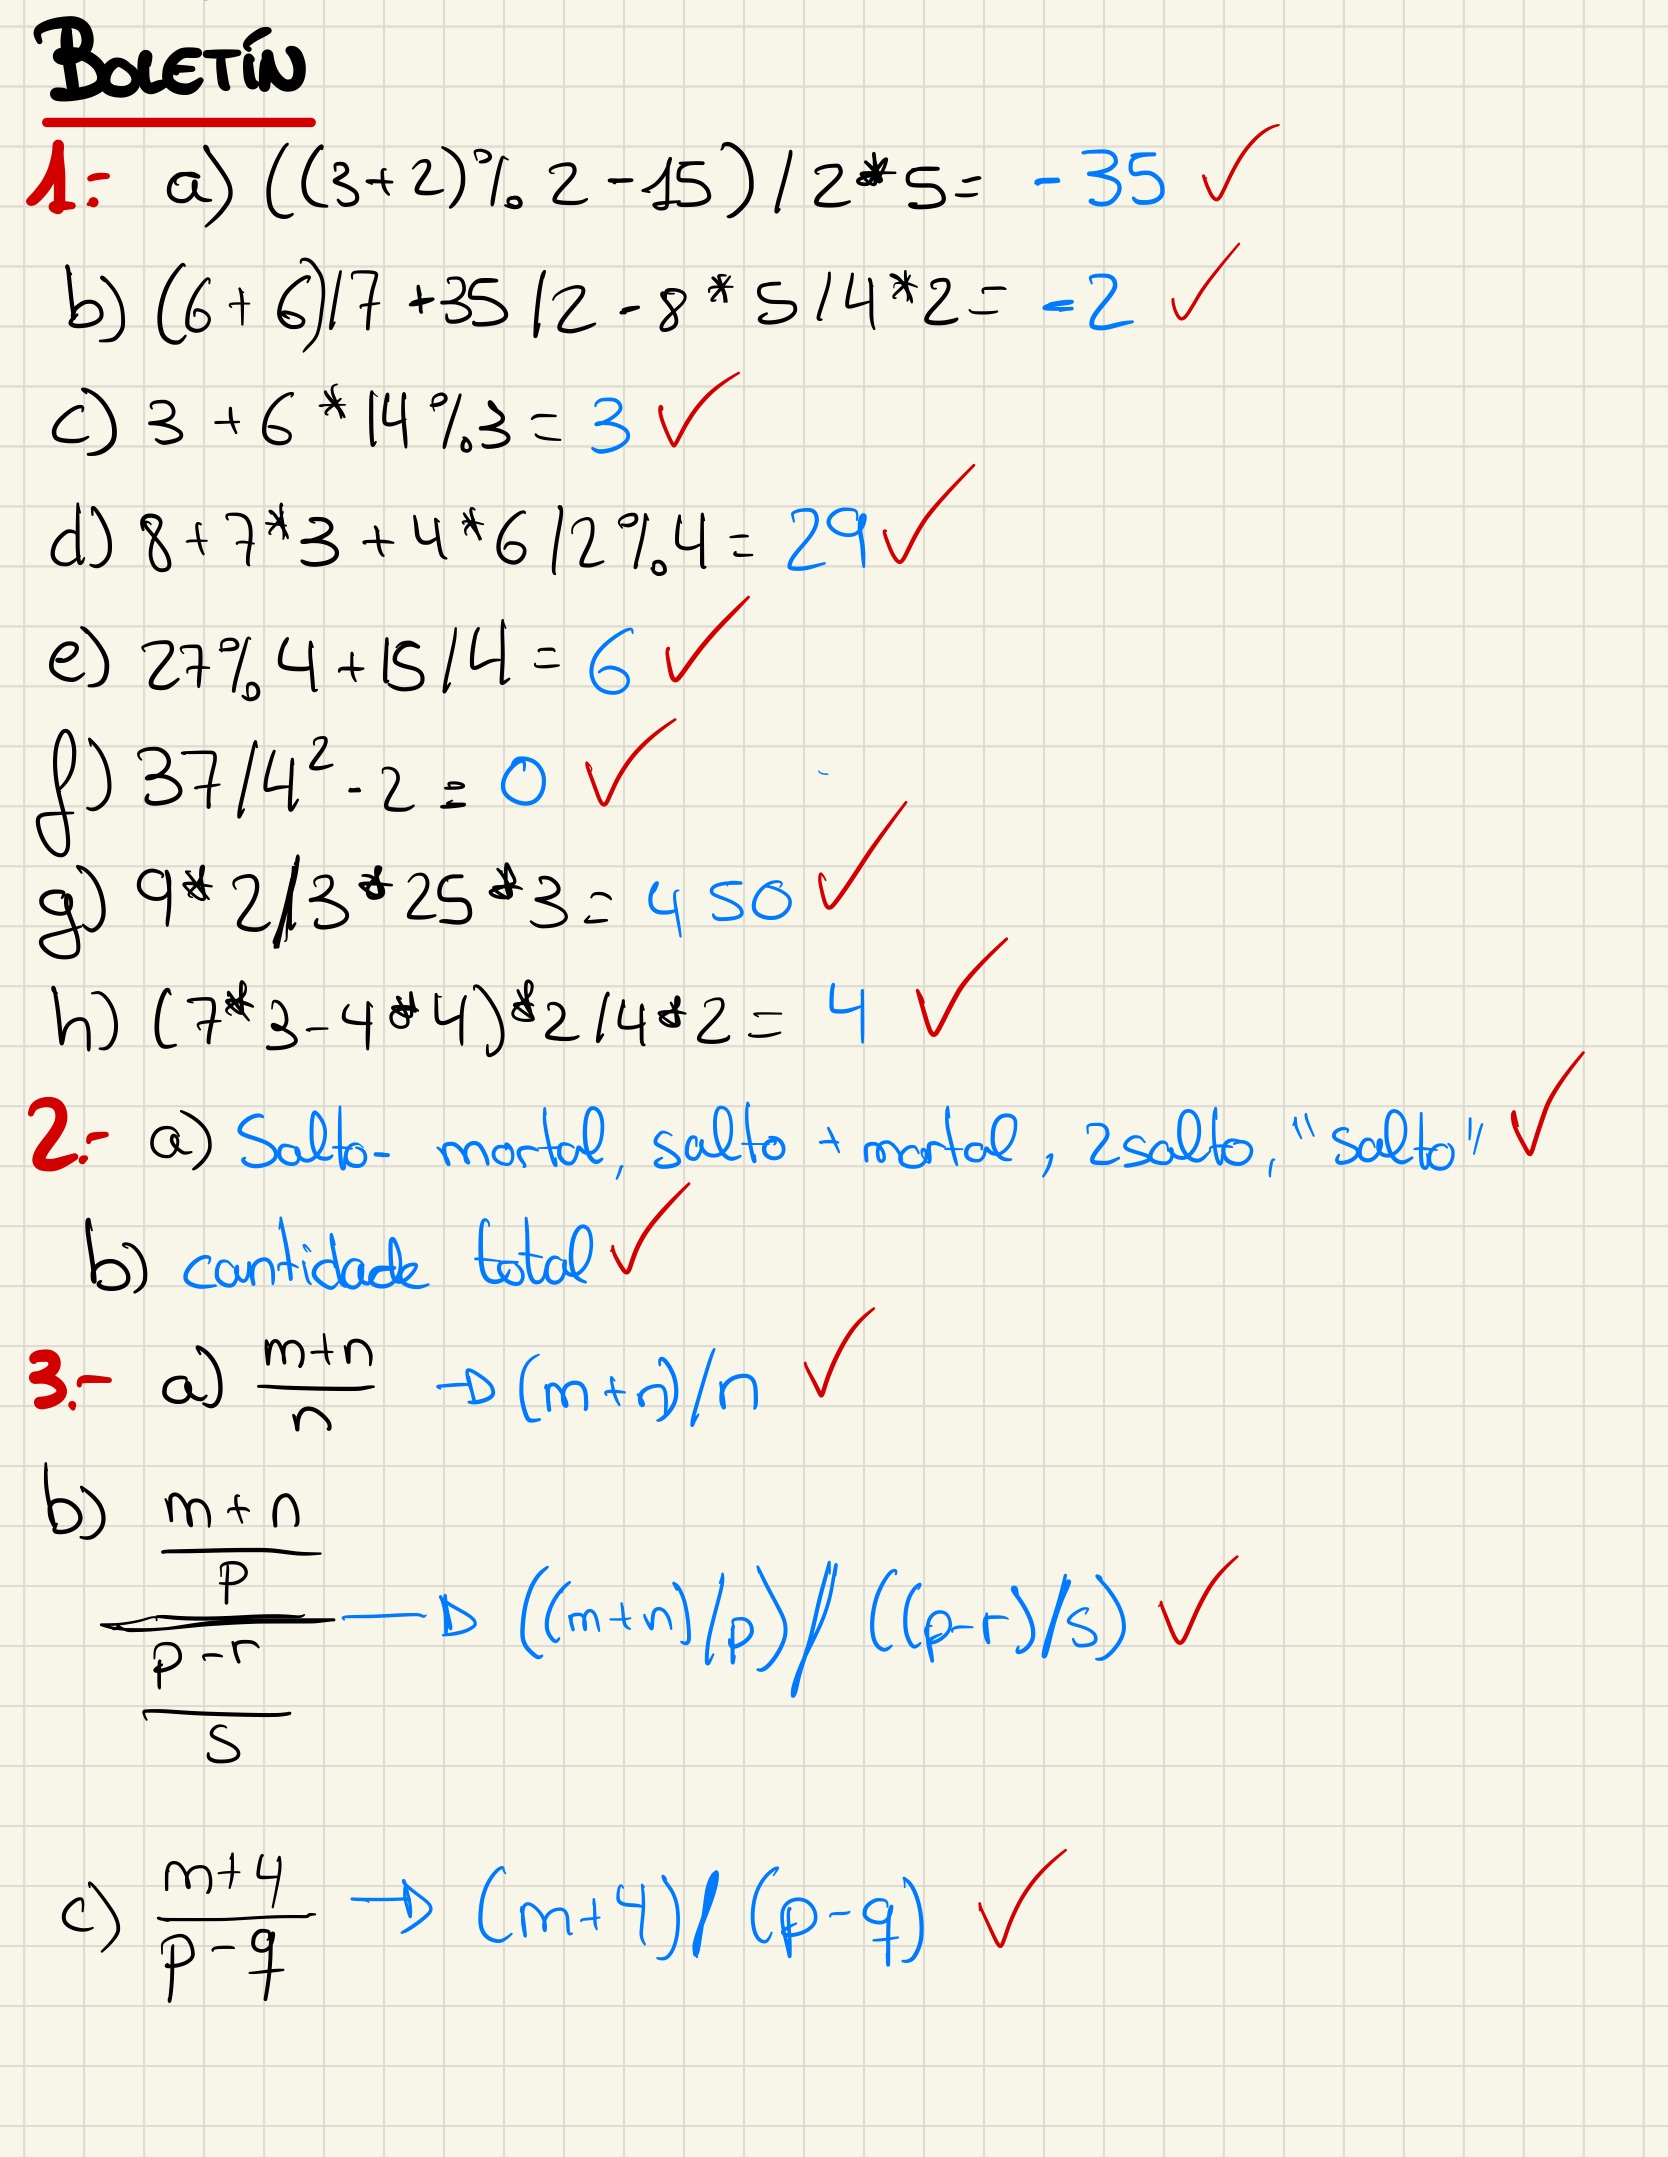 BOLETÍN
1.- a) ((3+2)% 2 -15) / 2 * 5 = -35 ✓
b) (6 + 6)/7 + 35 / 2 - 8 * 5 / 4 * 2 = -2 ✓
c) 3 + 6 * 14 % 3 = 3 ✓
d) 8 + 7 * 3 + 4 * 6 / 2 % 4 = 29 ✓
e) 27 % 4 + 15 / 4 = 6 ✓
f) 37 / 4² - 2 = 0 ✓
g) 9 * 2 / 3 * 25 * 3 = 450 ✓
h) (7 * 3 - 4 * 4) * 2 / 4 * 2 = 4 ✓
2.- a) Salto- mortal, salto + mortal, 2salto, "salto" ✓
b) cantidade total ✓
3.- a) m+n
n
→ (m+n)/n ✓
b) m+n
p
p-r
s
→ ((m+n)/p) / ((p-r)/s) ✓
c) m+4
p-q
→ (m+4) / (p-q) ✓